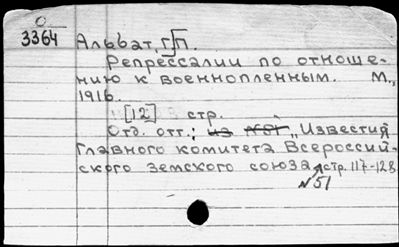 0
3364 Альбат, Г. П.
Репрессалии по отноше-
нию к военнопленным. М.,
1916.
[12] стр.
Отд. отт.: из №51 „Известия
Главного комитета Всероссий-
ского земского союза, стр. 117-128
№51